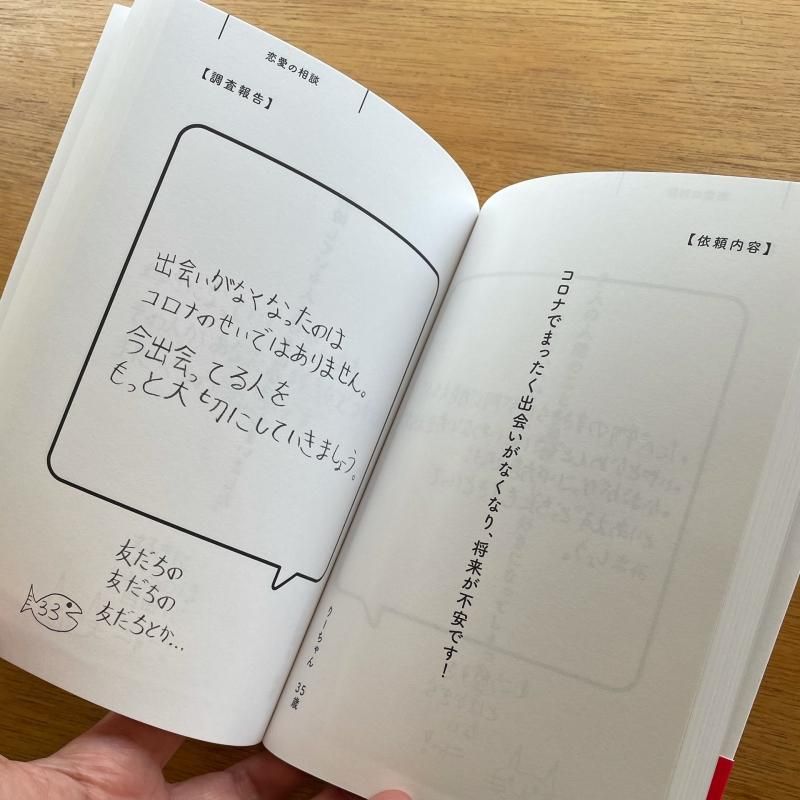 【依頼内容】
コロナでまったく出会いがなくなり、将来が不安です！
りーちゃん 35歳
恋愛の相談
【調査報告】
出会いがなくなったのは
コロナのせいではありません。
今出会ってる人を
もっと大切にしていきましょう。
友だちの
友だちの
友だちとか…
33